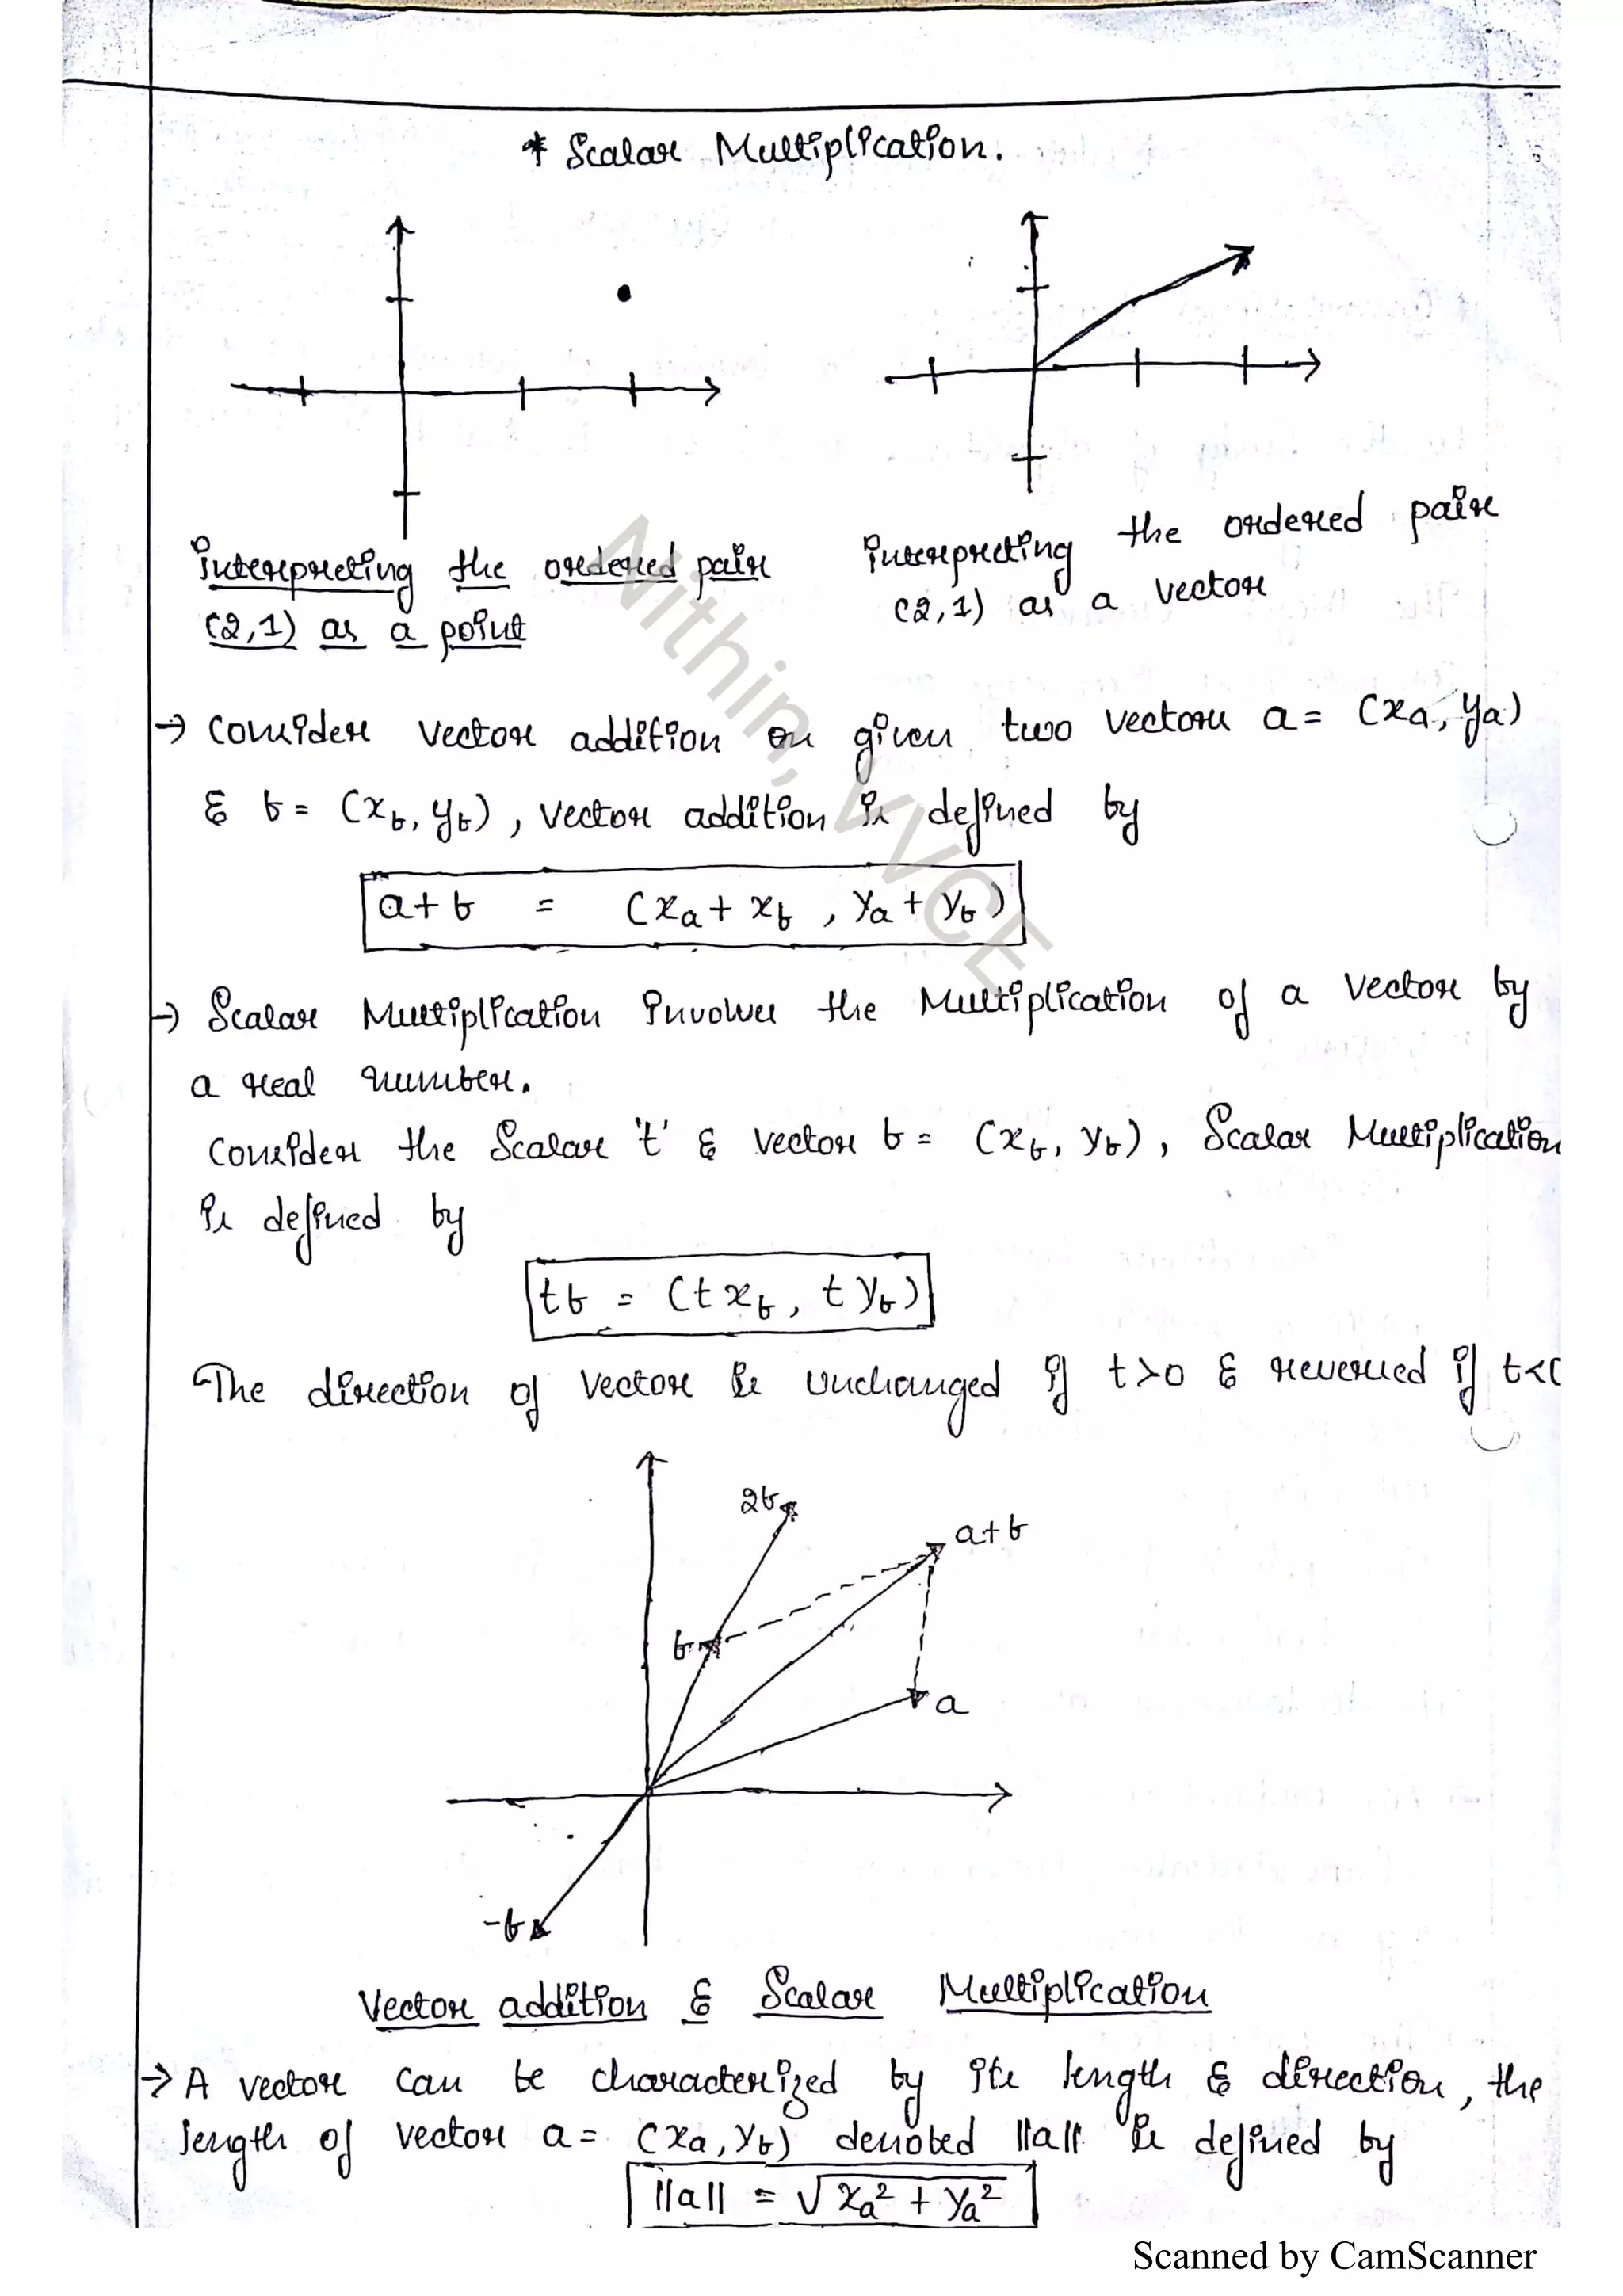 * Scalar Multiplication.
interpreting the ordered pair
(2,1) as a point
interpreting the ordered pair
(2,1) as a vector
→ Consider vector addition on given two vectors a = (xa, ya)
& b = (xb, yb), vector addition is defined by
a+b = (xa + xb, ya + yb)
→ Scalar Multiplication involves the Multiplication of a vector by
a real number.
Consider the Scalar 't' & vector b = (xb, yb), Scalar Multiplication
is defined by
tb = (t xb, t yb)
The direction of vector is unchanged if t>0 & reversed if t<0
2b
a+b
b
a
-b
Vector addition & Scalar Multiplication
→ A vector can be characterized by its length & direction, the
length of vector a = (xa, yb) denoted ||a|| is defined by
||a|| = √xa² + ya²
Nithin, VVCE
Scanned by CamScanner